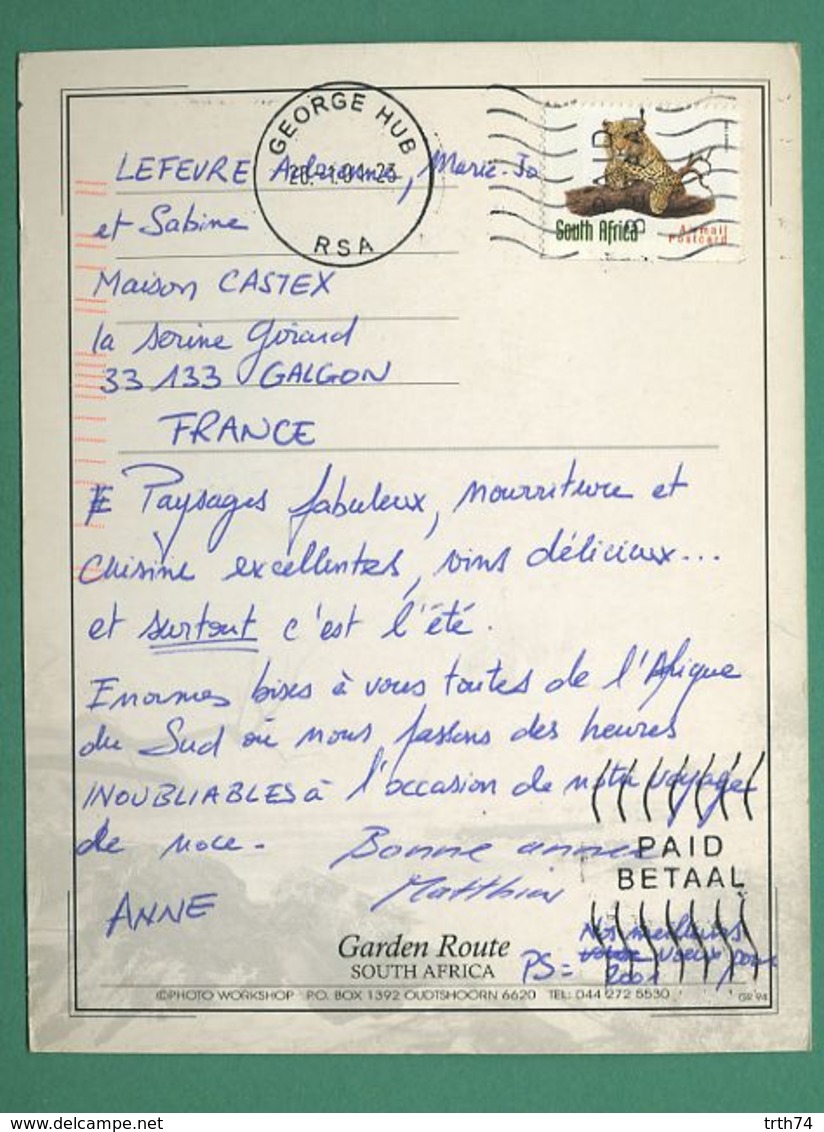 GEORGE HUB
RSA
South Africa
Airmail
Postcard
LEFEVRE Adrienne, Marie-Jo
et Sabine
Maison CASTEX
la Girard
33 133 GALGON
FRANCE
Paysages fabuleux, nourriture et
cuisine excellentes, vins délicieux...
et surtout c'est l'été.
Enormes bises à vous toutes de l'Afrique
du Sud où nous passons des heures
INOUBLIABLES à l'occasion de notre voyage
de noce.
Bonne année
Matthieu
ANNE
PAID
BETAAL
PS = Nos meilleurs
voeux pour
2001
Garden Route
SOUTH AFRICA
©PHOTO WORKSHOP P.O. BOX 1392 OUDTSHOORN 6620 TEL: 044 272 5530
GR 94
delcampe.net
trth74